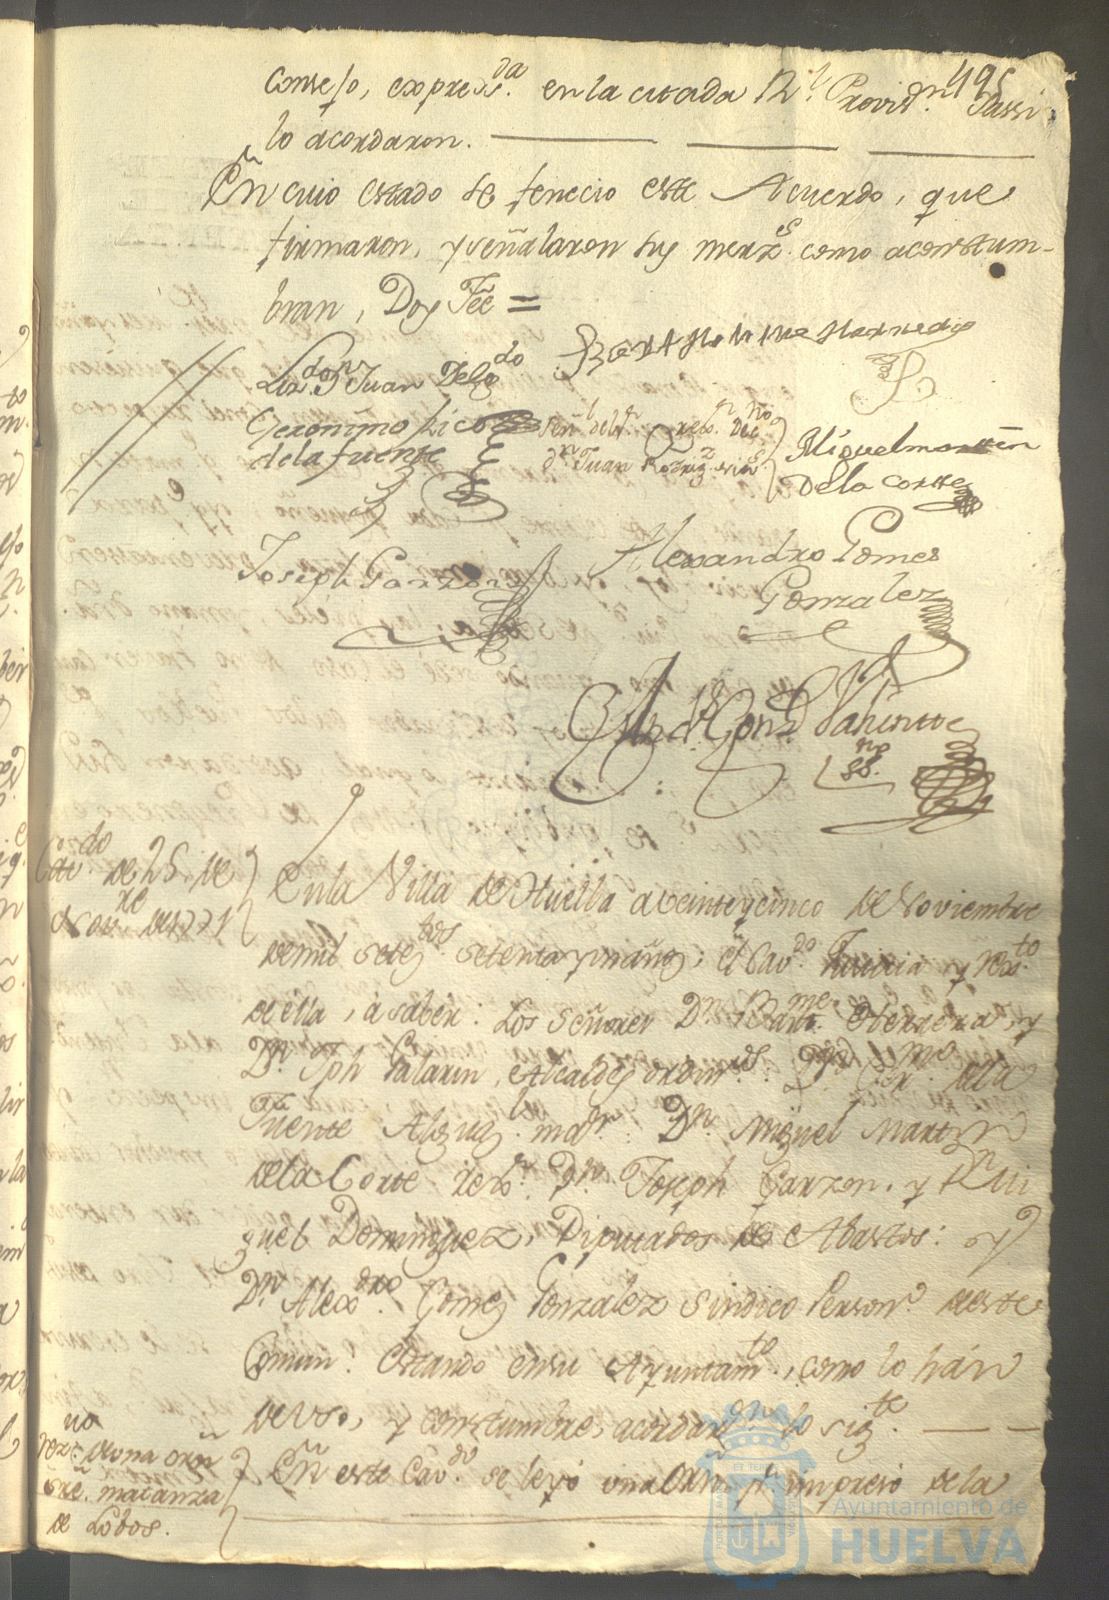 495
Consejo, expresda. en la citada Rl. Provisn. Y assi
lo acordaron.
En cuio estado se fenecio este Acuerdo, que
firmaron, y señalaron sus merzs. como acostum-
bran, Doy Fée =
Juan Delgdo
Geronimo
de la fuente
Señl. del Sr. Rexr. Dec
dn. Juan Rodrigz
Miguel martin
De la corte
Joseph Garzon
Alexandro Gomes
Gonzalez
Cavdo de 25 de
Nove. de 1771
En la Villa de Huelba a veinte y cinco de Noviembre
de mil setezdos. setenta y un años; el Cavdo. Justicia y rexto
de ella, a saber: Los Señores Dn. Barme. Herrera, y
Dn. Jph Galarin, Alcaldes ordinrios: Dn. Germo. de la
Fuente Alguaz. mayr: Dn. Miguel Martin
de la Corte rexr. Dn. Joseph Garzon. y Dn. Mi
guel Dominguez, Diputados de Abastos: y
Dn. Alexdro. Gomez Gonzalez Sindico Person. de este
Comun: Estando en su Ayuntamto., como lo hán
de uso, y constumbre, acordaron lo sigte.
de una orn
sre. matanza
de Lobos.
En este Cavdo. se leyó una Orn. impreso de la
Ayuntamiento de
HUELVA